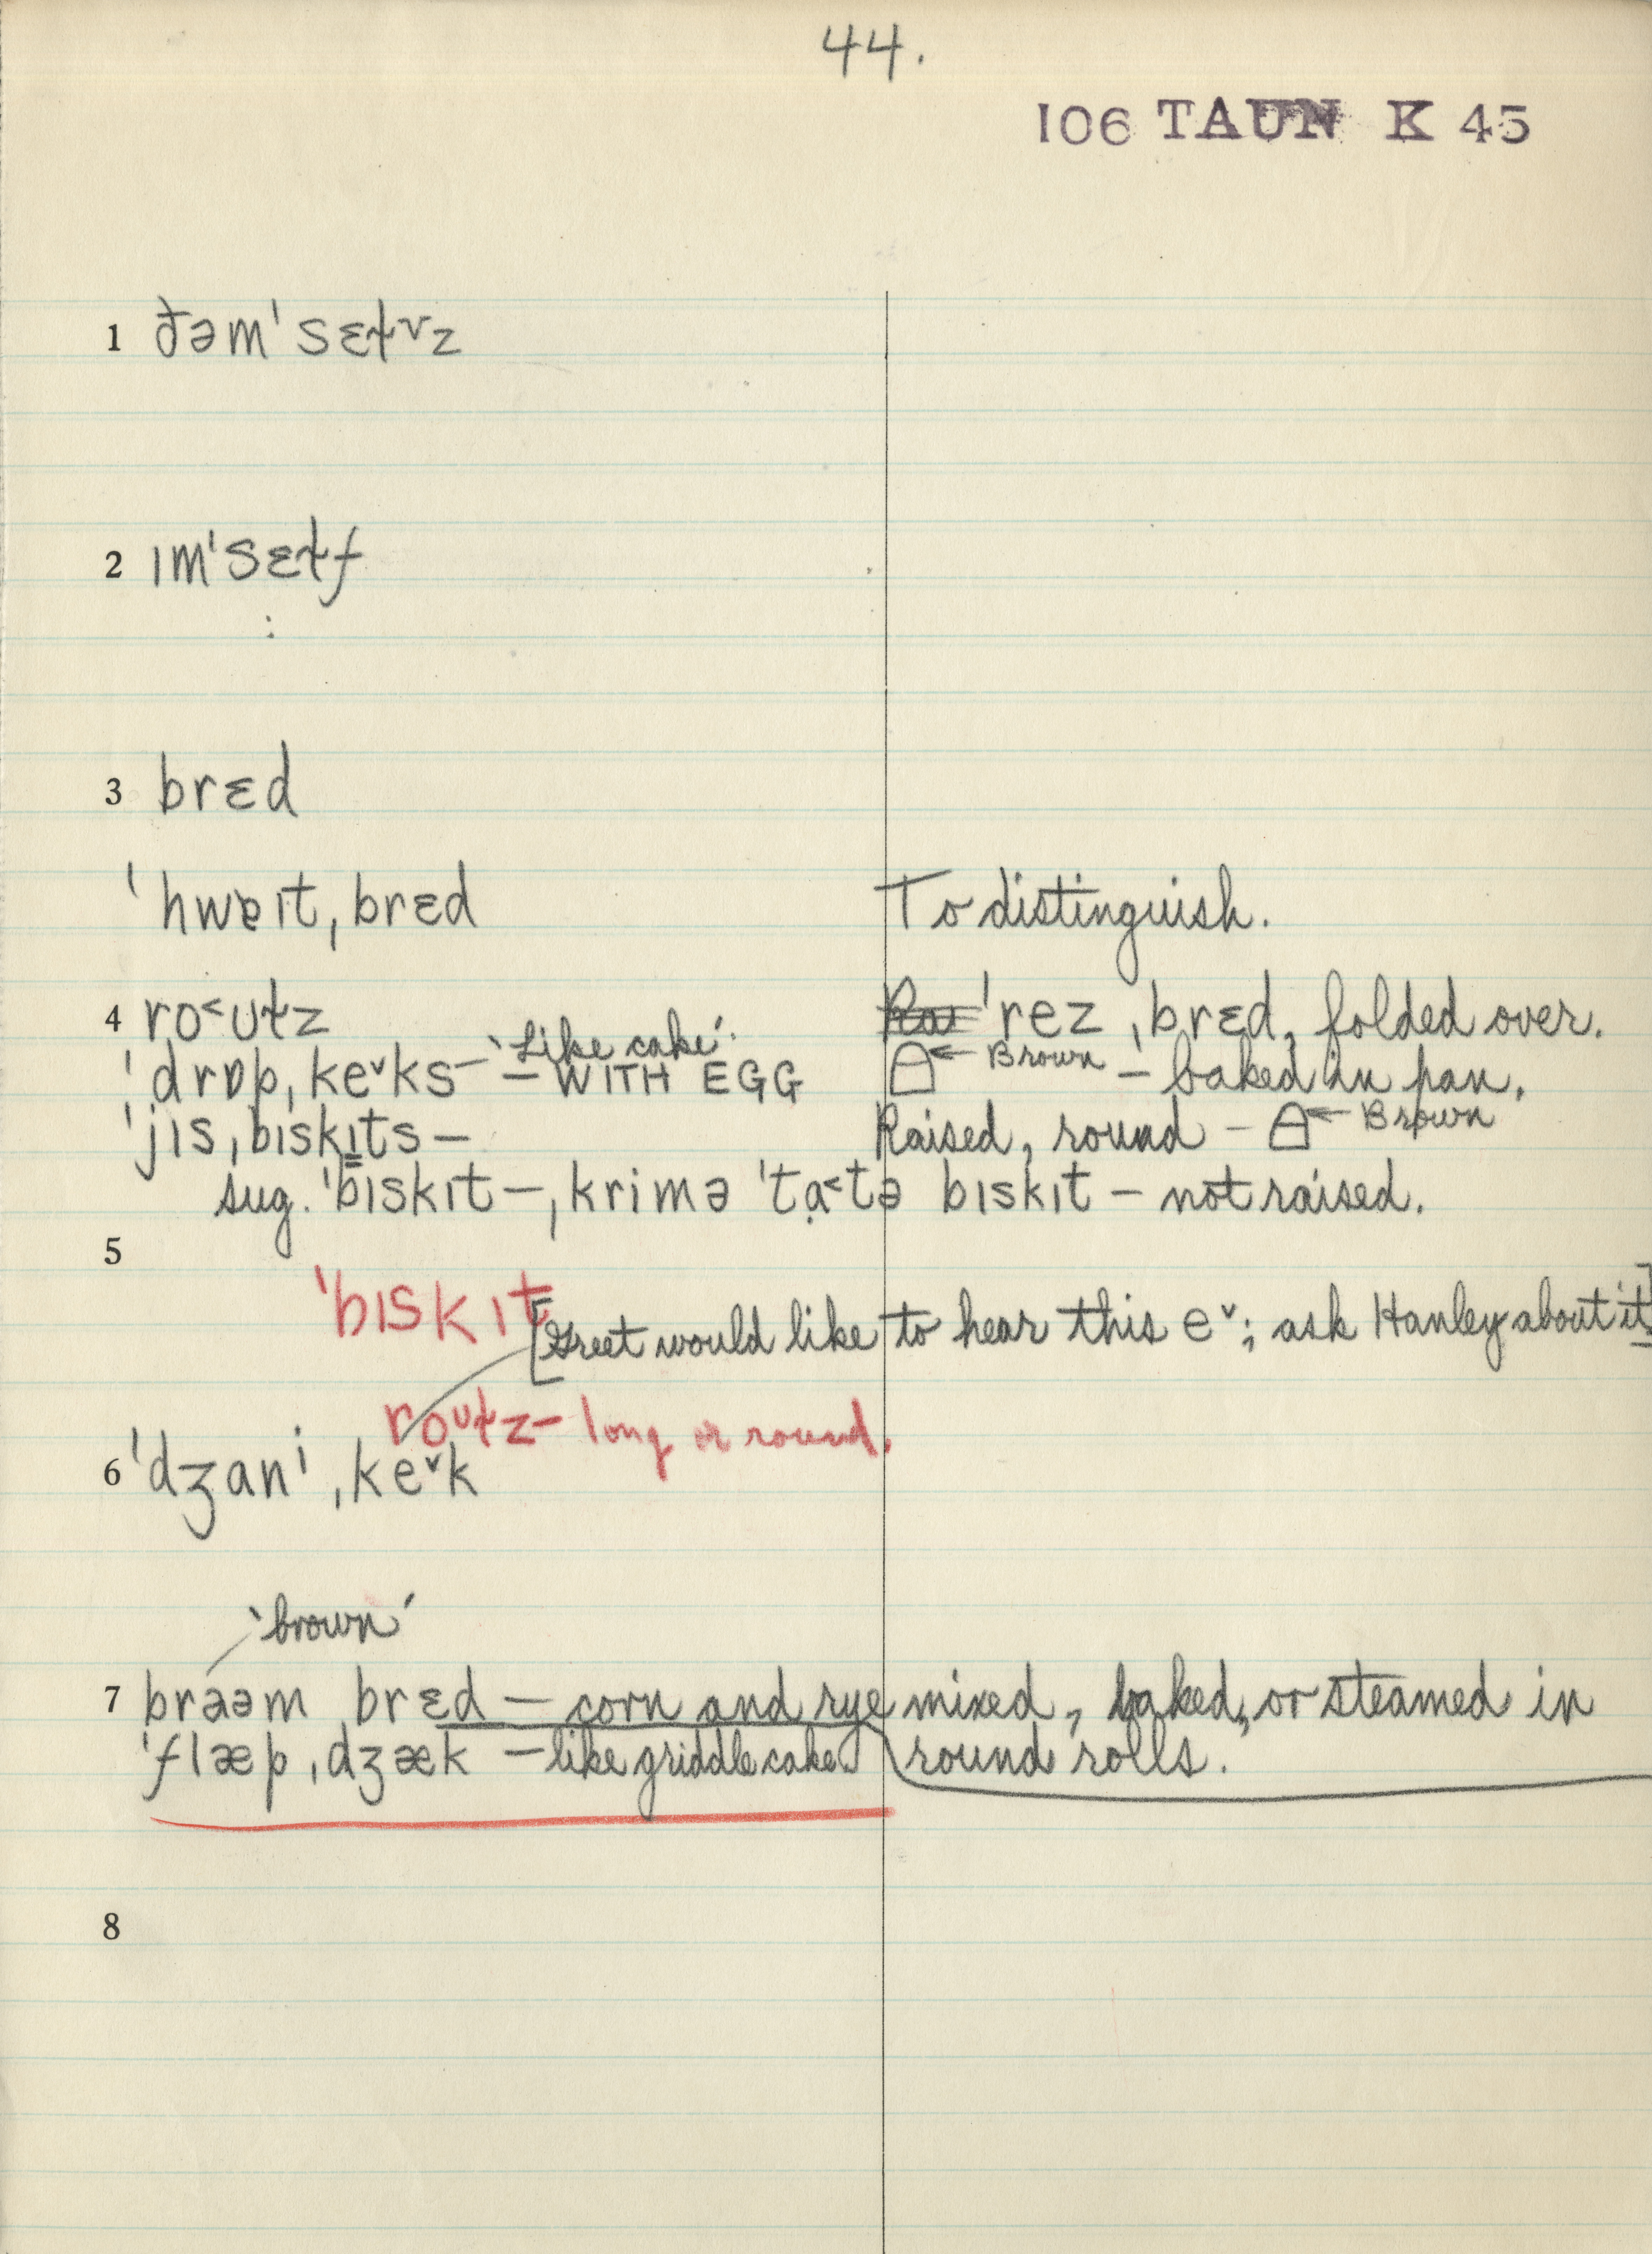 44.
106 TAUN K 45
1 ðəmˈsɛɫvz
2 ɪmˈsɛɫf
3 brɛd
ˈhwɐɪt ˌbrɛd To distinguish.
4 ro˂ʊɫz ˈrez ˌbrɛd, folded over.
ˈdrɒp ˌke˅ks – ‘Like cake’. – WITH EGG ← Brown – baked in pan.
ˈjis ˌbɪskɪts – Raised, round – ← Brown
sug. ˈbɪskɪt –, ˌkrimə ˈtạ˂tə bɪskɪt – not raised.
5
ˈbɪskɪt
[Greet would like to hear this e˅; ask Hanley about it]
roʊɫz – long or round.
6 ˈdʒani ˌke˅k
‘brown’
7 braəm brɛd – corn and rye mixed, baked, or steamed in
ˈflæp ˌdʒæk – like griddle cake. round rolls.
8